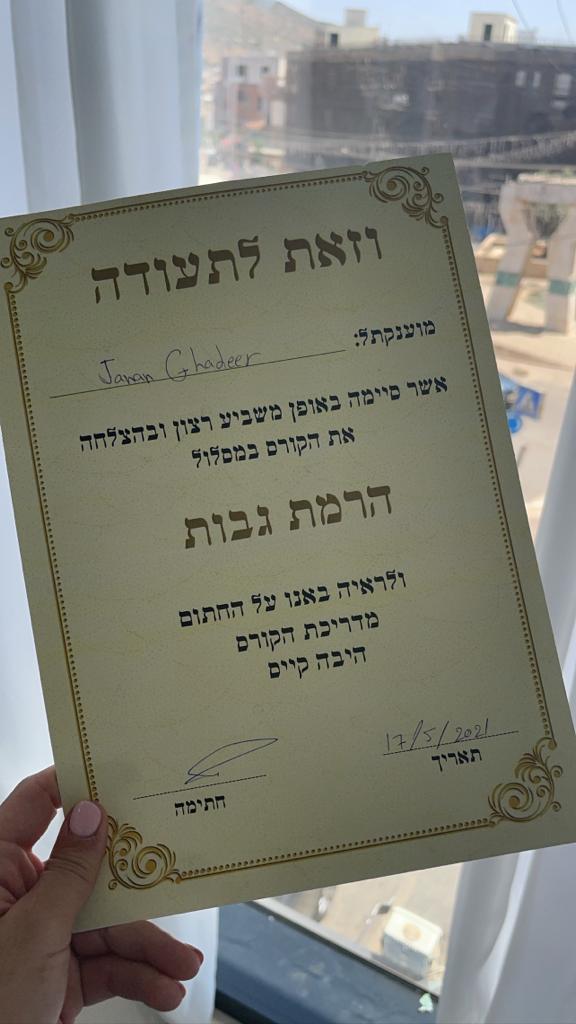 וזאת לתעודה
מוענקת ל: Janan Ghadeer
אשר סיימה באופן משביע רצון ובהצלחה
את הקורס במסלול
הרמת גבות
ולראיה באנו על החתום
מדריכת הקורס
היבה קיים
17/5/2021
תאריך
חתימה